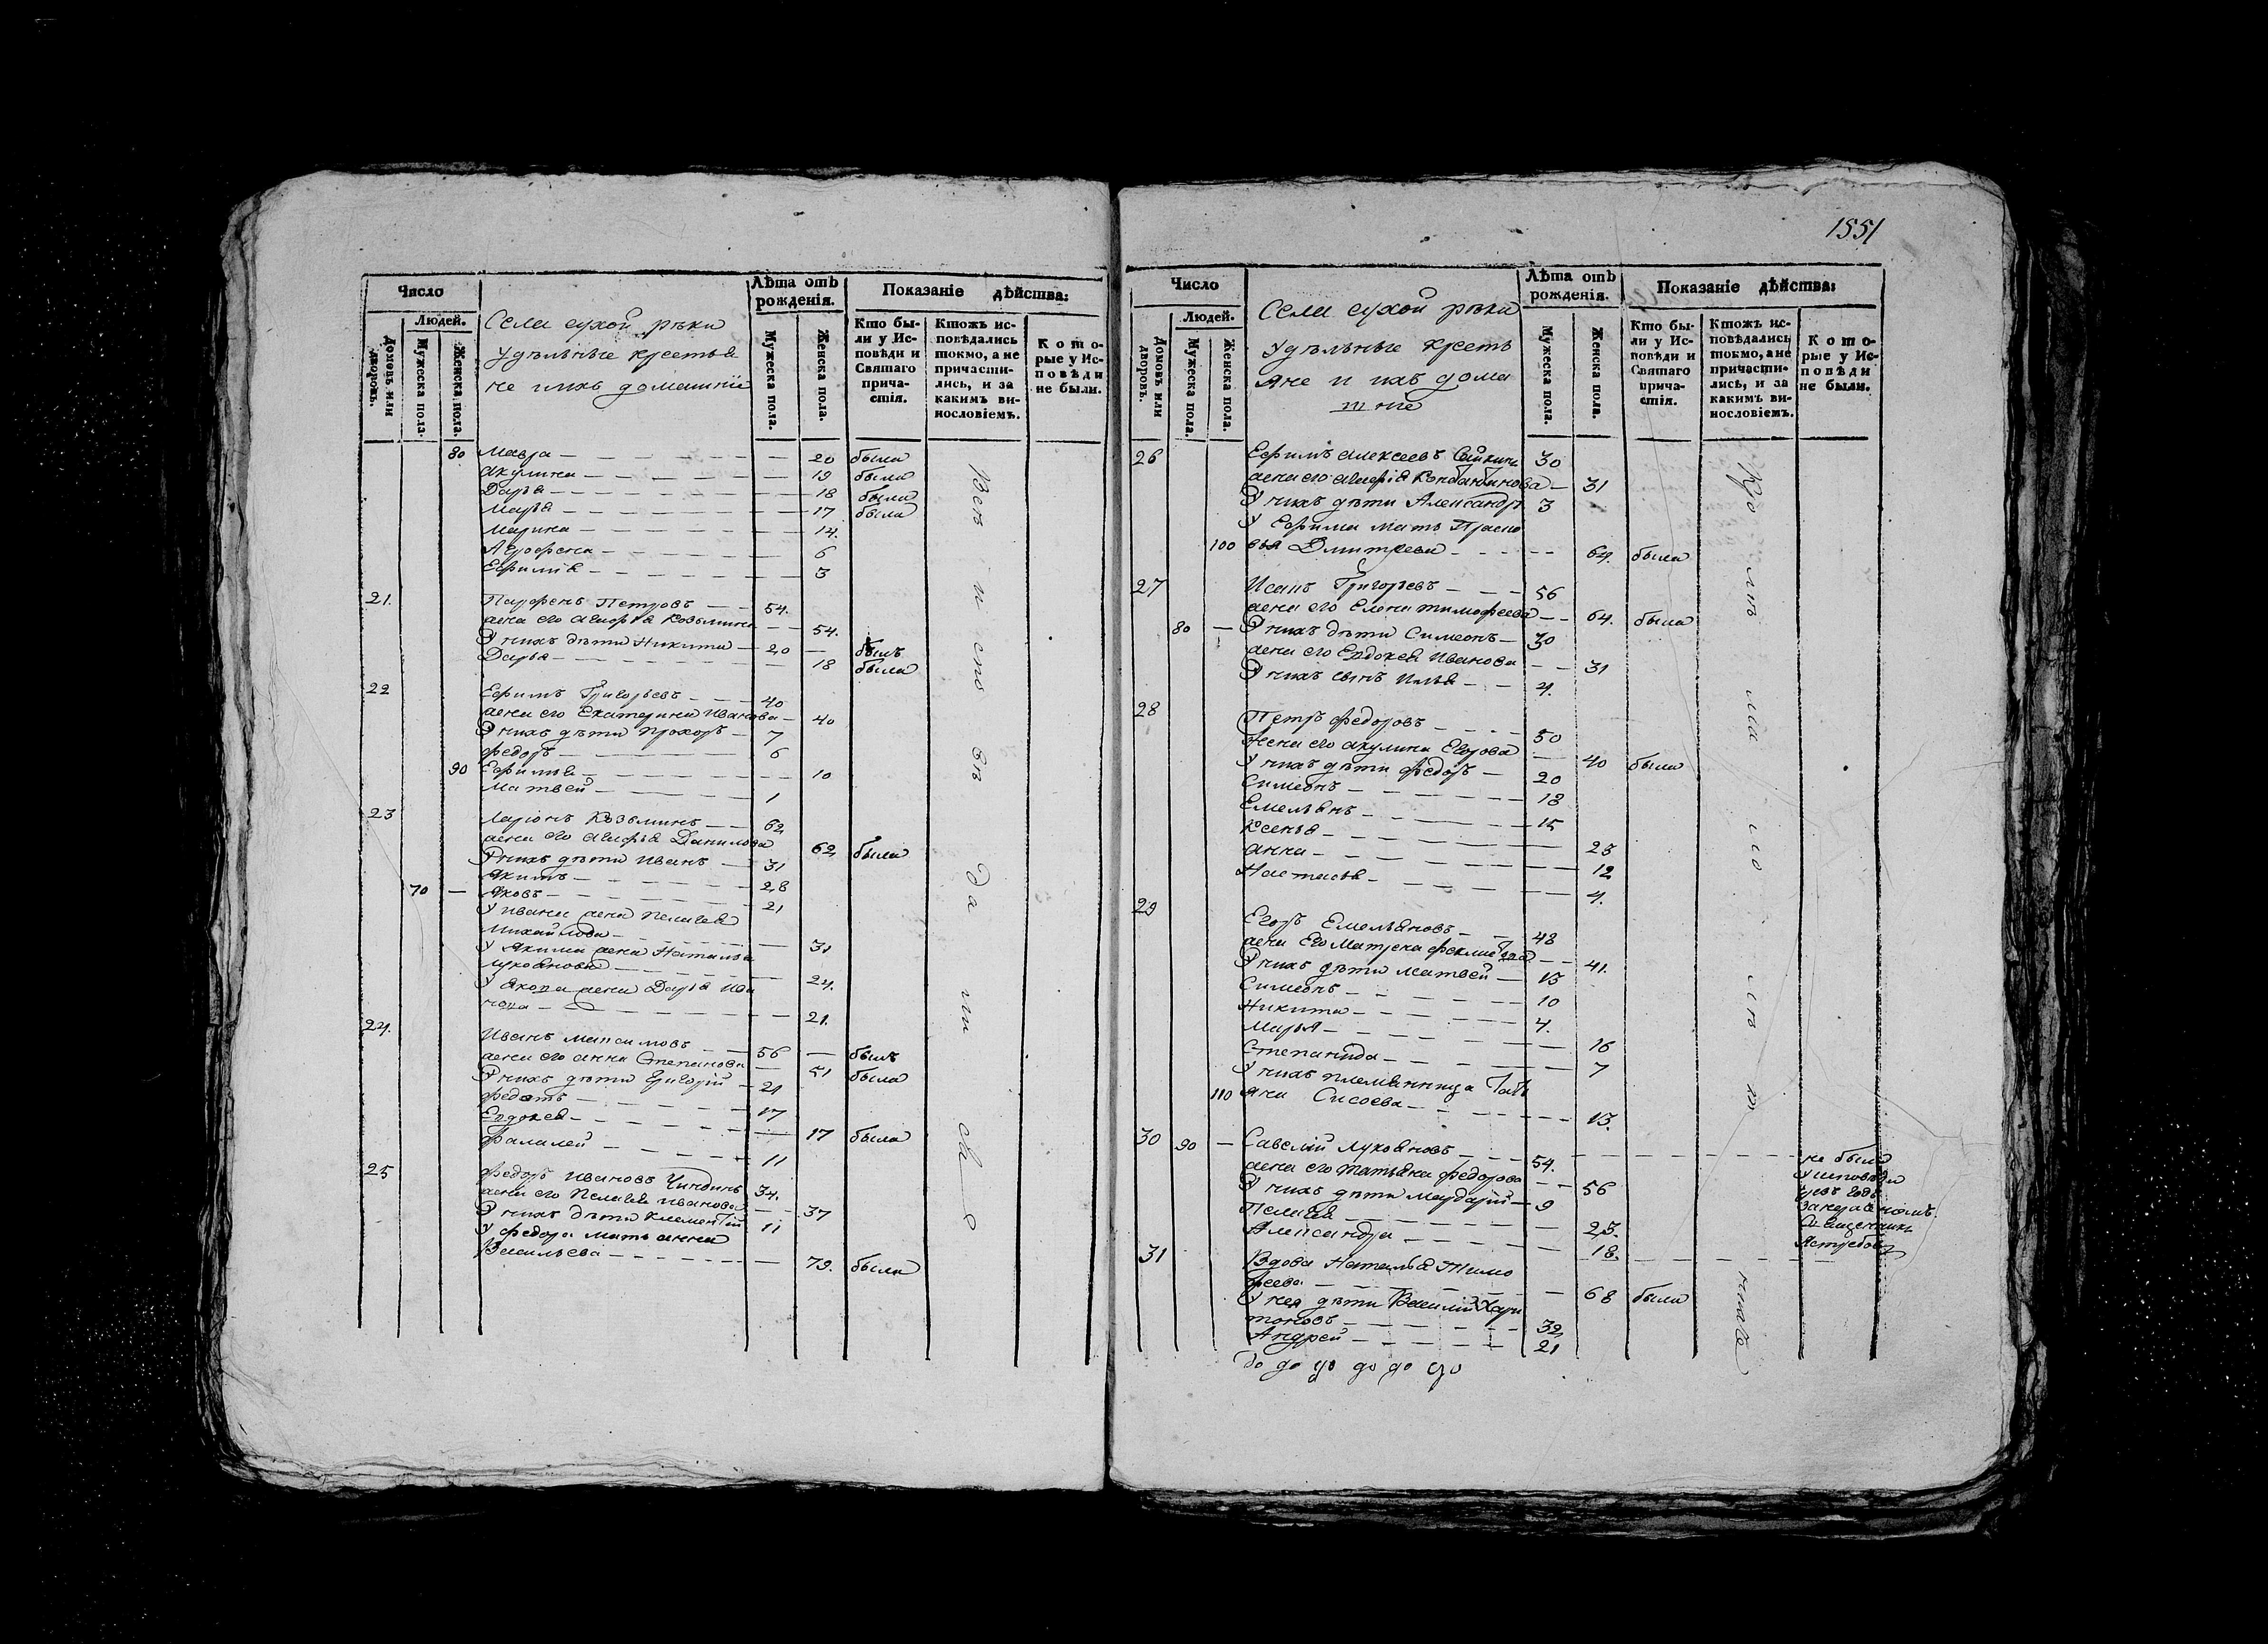 Число
Людей.
Домовъ или дворовъ.
Мужеска пола.
Женска пола.
Села сухой рѣки
удѣльные крестья
не ихъ домашніе
Лѣта отъ рожденія.
Мужеска пола.
Женска пола.
Показаніе дѣйства:
Кто бы-
ли у Ис-
повѣди и
Святаго
прича-
стія.
Ктожъ ис-
повѣдались
токмо, а не
причасти-
лись, и за
какимъ ви-
нословіемъ.
К о т о-
рые у Ис-
п о в ѣ д и
не были.
80 Мавра 20 была
Акулина 19 была
Дарья 18 была
Марья 17 была
Марина 14.
Агрофена 6
Ефимія 3
21. Парфенъ Петровъ 54.
жена его Агафья Козьмина 54.
У нихъ дѣти Никита 20 былъ
Дарья 18 была
22 Ефимъ Григорьевъ 40
жена его Екатерина Иванова 40
У нихъ дѣти Прохоръ 7
Федоръ 6
90 Ефимья 10
Матвей 1
23 Ларіонъ Козьминъ 62
жена его Агафья Данилова 62 была
У нихъ дѣти Иванъ 31
Якимъ 28
70 Яковъ 21
У Ивана жена Пелагея
Михайлова 31
У Якима жена Наталья
Лукоянова 24.
У Якова жена Дарья Ива
нова 21.
24. Иванъ Максимовъ 56 былъ
жена его Анна Степанова 51 была
У нихъ дѣти Григорій 21
Федотъ 17
Евдокея 17 была
Фалалей 11
25 Федоръ Ивановъ Чиндинъ 34.
жена его Пелагея Иванова 37
У нихъ дѣти Клементій 11
У Федора мать Анна
Васильева 79. была
1551
Число
Людей.
Домовъ или дворовъ.
Мужеска пола.
Женска пола.
Села сухой рѣки
Удѣльные кресть
яне и ихъ дома
шніе
Лѣта отъ рожденія.
Мужеска пола.
Женска пола.
Показаніе дѣйства:
Кто бы-
ли у Ис-
повѣди и
Святаго
прича-
стія.
Ктожъ ис-
повѣдались
токмо, а не
причасти-
лись, и за
какимъ ви-
нословіемъ.
К о т о-
рые у Ис-
п о в ѣ д и
не были.
26 Ефимъ Алексеевъ 30
жена его Костантинова 31
У нихъ дѣти Александръ 3
У Ефима мать Праско
100 вья Дмитрева 64. была
27 Исаакъ Григорьевъ 56
жена его Елена Тимофеева 64. была
80 У нихъ дѣти Симеонъ 30
жена его Евдокея Иванова 31
У нихъ сынъ Илья 4.
28 Петръ Федоровъ 50
Жена его Акулина Егорова 40 была
У нихъ дѣти Федоръ 20
Симеонъ 18
Емельянъ 15
Ксенья 23
Анна 12
Настасья 4.
29 Егоръ Емельяновъ 48
жена Его Матрена Феклистова 41.
У нихъ дѣти Матвей 15
Симеонъ 10
Никита 4.
Марья 16
Степанида 7
У нихъ племянница Тать
110 яна Сисоева 15.
30 90 Савелій Лукояновъ 54. не были
жена его Татьяна Федорова 56 у исповѣди
У нихъ дѣти Мардарій 9
Пелагея 23.
Александра 18.
31 Вдова Наталья Тимо
феева 68 была
У нея дѣти Василій Хари
тоновъ 32
Андрей 21